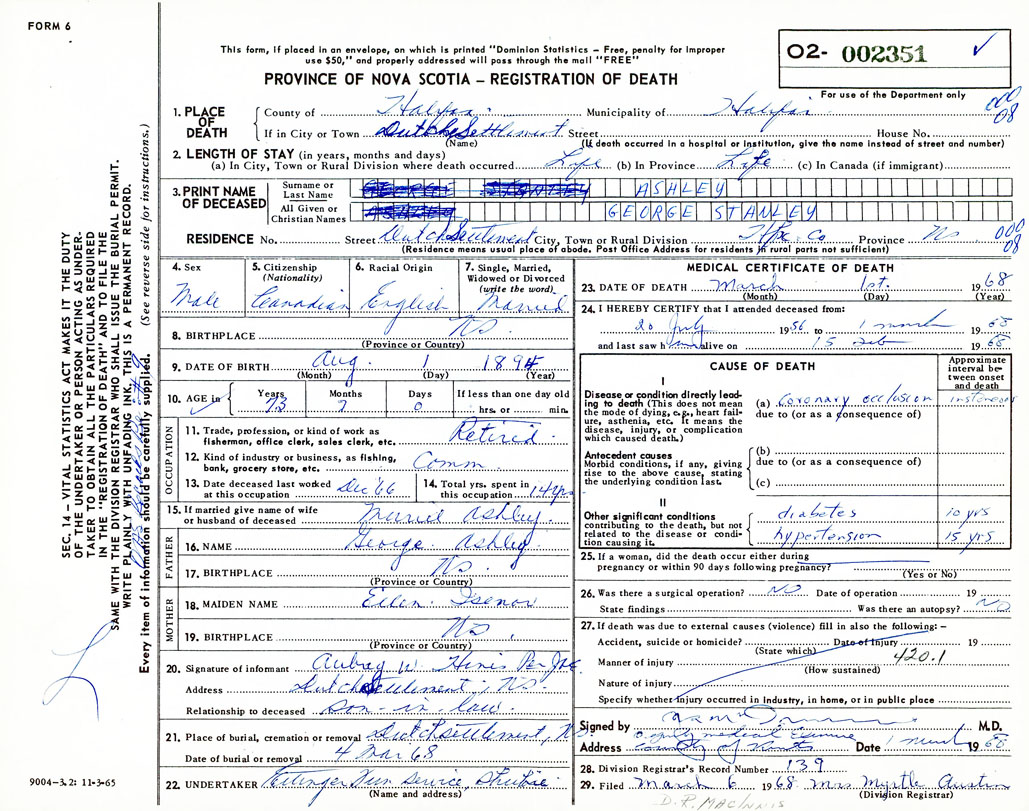 FORM 6
This form, if placed in an envelope, on which is printed "Dominion Statistics - Free, penalty for improper
use $50," and properly addressed will pass through the mail "FREE"
PROVINCE OF NOVA SCOTIA - REGISTRATION OF DEATH
O2- 002351 ✓
For use of the Department only
000
08
1. PLACE OF DEATH
County of Halifax Municipality of Halifax
If in City or Town Dutch Settlement Street House No.
(Name) (If death occurred in a hospital or institution, give the name instead of street and number)
2. LENGTH OF STAY (in years, months and days)
(a) In City, Town or Rural Division where death occurred Life (b) In Province Life (c) In Canada (if immigrant)
3. PRINT NAME OF DECEASED
Surname or Last Name GEORGE STANLEY ASHLEY
All Given or Christian Names ASHLEY GEORGE STANLEY
RESIDENCE No. Street Dutch Settlement City, Town or Rural Division Hfx. Co Province NS
000
08
(Residence means usual place of abode, Post Office Address for residents in rural parts not sufficient)
4. Sex Male
5. Citizenship (Nationality) Canadian
6. Racial Origin English
7. Single, Married, Widowed or Divorced (write the word) Married
8. BIRTHPLACE NS
(Province or Country)
9. DATE OF BIRTH Aug. 1 1894
(Month) (Day) (Year)
10. AGE in Years 73 Months 7 Days 0 If less than one day old hrs. or min.
OCCUPATION
11. Trade, profession, or kind of work as fisherman, office clerk, sales clerk, etc. Retired
12. Kind of industry or business, as fishing, bank, grocery store, etc. Comm
13. Date deceased last worked at this occupation Dec '66
14. Total yrs. spent in this occupation 14 yrs
15. If married give name of wife or husband of deceased Muriel Ashley
FATHER
16. NAME George Ashley
17. BIRTHPLACE NS
(Province or Country)
MOTHER
18. MAIDEN NAME Eilen Isenor
19. BIRTHPLACE NS
(Province or Country)
20. Signature of informant Aubrey W Per
Address Dutch Settlement, NS
Relationship to deceased son-in-law
21. Place of burial, cremation or removal Dutch Settlement, NS
Date of burial or removal 4 Mar 68
22. UNDERTAKER Ettinger Fun Service
(Name and address)
MEDICAL CERTIFICATE OF DEATH
23. DATE OF DEATH March 1st. 1968
(Month) (Day) (Year)
24. I HEREBY CERTIFY that I attended deceased from:
20 July 1956 to 1 march 1968
and last saw him alive on 15 Feb 1968
CAUSE OF DEATH
Approximate interval between onset and death
I
Disease or condition directly leading to death (This does not mean the mode of dying, e.g., heart failure, asthenia, etc. It means the disease, injury, or complication which caused death.)
(a) coronary occlusion
due to (or as a consequence of)
Antecedent causes
Morbid conditions, if any, giving rise to the above cause, stating the underlying condition last.
(b)
due to (or as a consequence of)
(c)
II
Other significant conditions contributing to the death, but not related to the disease or condition causing it.
diabetes 10 yrs
hypertension 15 yrs
25. If a woman, did the death occur either during pregnancy or within 90 days following pregnancy?
(Yes or No)
26. Was there a surgical operation? NO Date of operation 19
State findings Was there an autopsy? NO
27. If death was due to external causes (violence) fill in also the following: -
Accident, suicide or homicide? Date of injury 19
(State which)
Manner of injury 420.1
(How sustained)
Nature of injury
Specify whether injury occurred in industry, in home, or in public place
Signed by M.D.
Address medical Examiner County of Hants Date 1 March 1968
28. Division Registrar's Record Number 139
29. Filed March 6 1968 Mrs Myrtle Austin
(Division Registrar)
D.R. MACINNIS
SEC. 14 - VITAL STATISTICS ACT MAKES IT THE DUTY
OF THE UNDERTAKER OR PERSON ACTING AS UNDER-
TAKER TO OBTAIN ALL THE PARTICULARS REQUIRED
IN THE "REGISTRATION OF DEATH" AND TO FILE THE
SAME WITH THE DIVISION REGISTRAR WHO SHALL ISSUE THE BURIAL PERMIT.
WRITE PLAINLY WITH UNFADING INK. THIS IS A PERMANENT RECORD.
Every item of information should be carefully supplied. (See reverse side for instructions.)
9004-3.2: 11-3-65